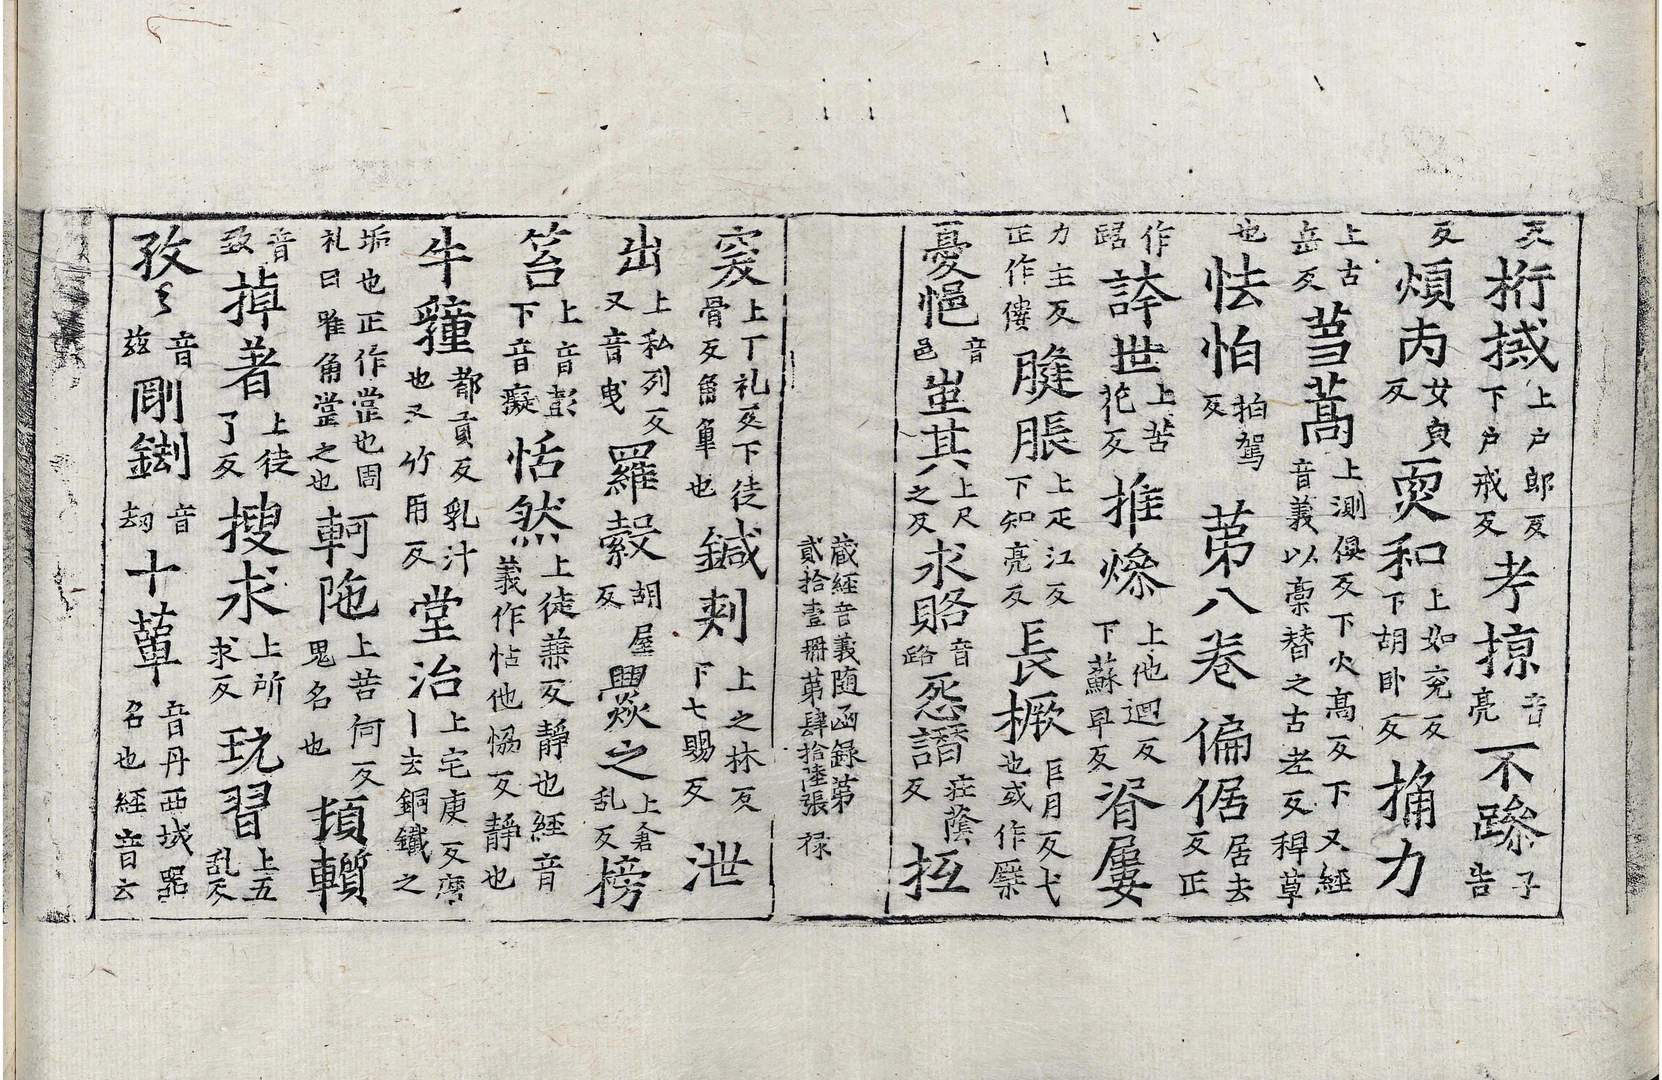 反桁㭜上户郎反下户戒反考掠音亮不𨅶子告
反煩肉女㒵反耎和上如兖反下胡卧反捅力
上古岳反䓘蒿上測俱反下火高反下又經音義以稾替之古老反稈草
也怯怕拍駕反第八卷偏倨居去反正
作踞誇世上苦花反推㷮上他迴反下蘇早反眉屢
力主反正作僂膖脹上疋江反下知亮反長橛巨月反弋也或作𣙗
憂悒音邑蚩其上尺之反求賂音路惌譖莊蔭反抂
藏經音義随函録第貳拾壹冊第肆拾陸張禄
窔上丁礼反下徒骨反角䡄也鍼刾上之林反下七賜反泄
出上私列反又音曳羅縠胡屋反爨之上倉乱反榜
笞上音彭下音癡恬然上徒蒹反靜也經音義作怗他惱反靜也
牛𤛗都貢反乳汁也又竹用反堂治上宅庚反磨丨去銅鐵之
垢也正作𣥺也周礼曰雅角𣥺之也軻陁上苦何反鬼名也頓轒
音致掉著上徒了反搜求上所求反玩習上五乱反
孜〻音茲剛𨧱音刼十簞音丹西域器名也經音云